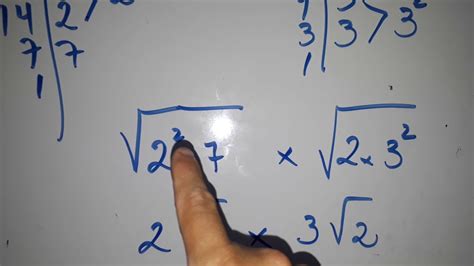 14 | 2
7 | 7
1 |
3 | 3 > 3²
1 |
√2² 7 × √2 × 3²
2 √ × 3√2